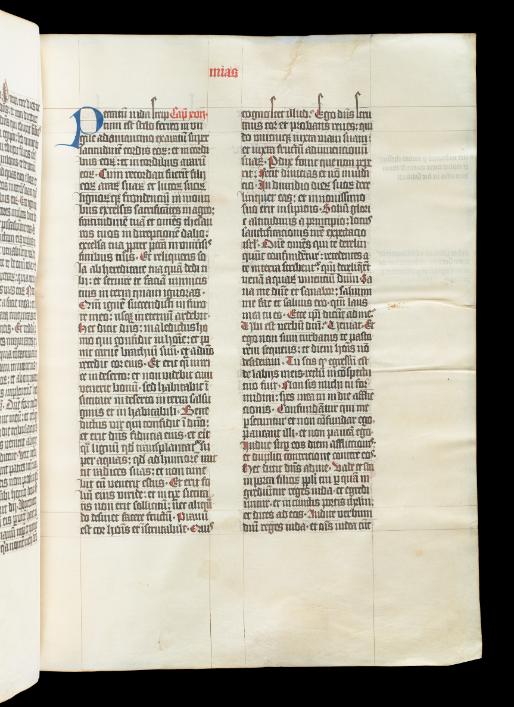 mias
Peccatū iuda scrip Capᵐ xvii.
tum est stilo ferreo in un
gue adamantino exaratū super
latitudinē cordis eoꝝ et in corni
bus
eoꝝ Cum recordati fuerīt filii
eoꝝ araꝝ suaꝝ et lucoꝝ suoꝝ
lignoꝝqꝫ frondentiū in monti
bus excelsis sacrificātes in agro:
fortitudinē tuā et omēs thesau
ros tuos in direptionē dabo:
excelsa tua ꝓpter pctā in univsis
finibus tuis. Et relinqueris so
la ab hereditate tua quā dedi ti
bi: et servire te faciā inimicis
tuis in terra quam ignoras.
Qm̄ ignē succendisti in furo
re meo: usqꝫ in eternū ardebit.
Hec dicit dn̄s: maledictus ho
mo qui confidit in hoīe: et po
nit carnē brachiū suū: et a dn̄o
recedit cor eius. Et erit qͣsi mirice
in deserto: et non videbit cum
venerit bonū: sed habitabit ī
siccitate in deserto in terra salsu
ginis et in habitabili. Bene
dictus vir qui confidit ī dn̄o:
et erit dn̄s fiducia eius: et erit
qͣsi lignū qd̄ transplantat' suꝑ
per aquas: qd̄ ad humorē mit
tit radices suas: et non time
bit cū venerit estus. Et erit fo
liū eius viride: et in tꝑe siccita
tis non erit sollicitū: nec aliqn̄
do desinet facere fructū. Pravū
est cor hoīs et īscrutabile. Quis
cognoscet illud. Ego dn̄s scru
tans cor et probans renes: qui
do unicuiqꝫ iuxta viam suam:
et iuxta fructū adinventionū
suaꝝ. Pdix fovit que non pepe
rit: fecit divitias et nō in iudi
cio. In dimidio dieꝝ suoꝝ dere
linquet eas: et in novissimo
suo erit insipiens. Soliū glorie
altitudinis a principio: locus
sanctificationis nr̄e expectatio
isrl'. Dn̄e omēs qui te derelin
quūt confundētur: recedentes a
te in terra scribentꝰ qm̄ derliq̄rūt
venā aquaꝝ viventiū dnm̄. Sa
na me dn̄e et sanabor: salvum
me fac et salvus ero: qm̄ laus
mea tu es. Ecce ip̄i dicūt ad me:
Ubi est verbū dn̄i. Veniat. Et
ego non sum turbatus te pasto
rem sequens: et diem hoīs nō
desideravi. Tu scis qd̄ egressū est
de labijs meis: rectū in cōspectu
tuo fuit. Non sis michi tu for
midini: spes mea tu in die afflic
tionis. Confundātur qui me
ꝑsecuntur et non cōfundar ego:
paveant illi et non paveā ego.
Induc suꝑ eos diem afflictionis:
et duplici contritione contere eos.
Hec dicit dn̄s ad me. Vade et sta
in porta filioꝝ ppli mi ꝑ quā in
grediuntur reges iuda et egredi
untur: et in cunctis portis ihrlm:
et dices ad eos. Audite verbum
dn̄i reges iuda: et om̄s iuda cūc